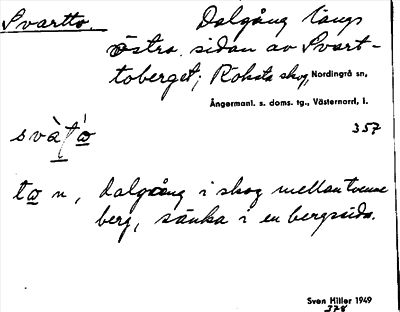 Svartto. Dalgång längs
östra sidan av Svart-
toberget; Röksta skog, Nordingrå sn,
Ångermanl. s. doms. tg., Västernorrl. l.
svàt´o 357
to n, dalgång i skog mellan tvenne
berg, sänka i en bergsida.
Sven Hiller 1949
378